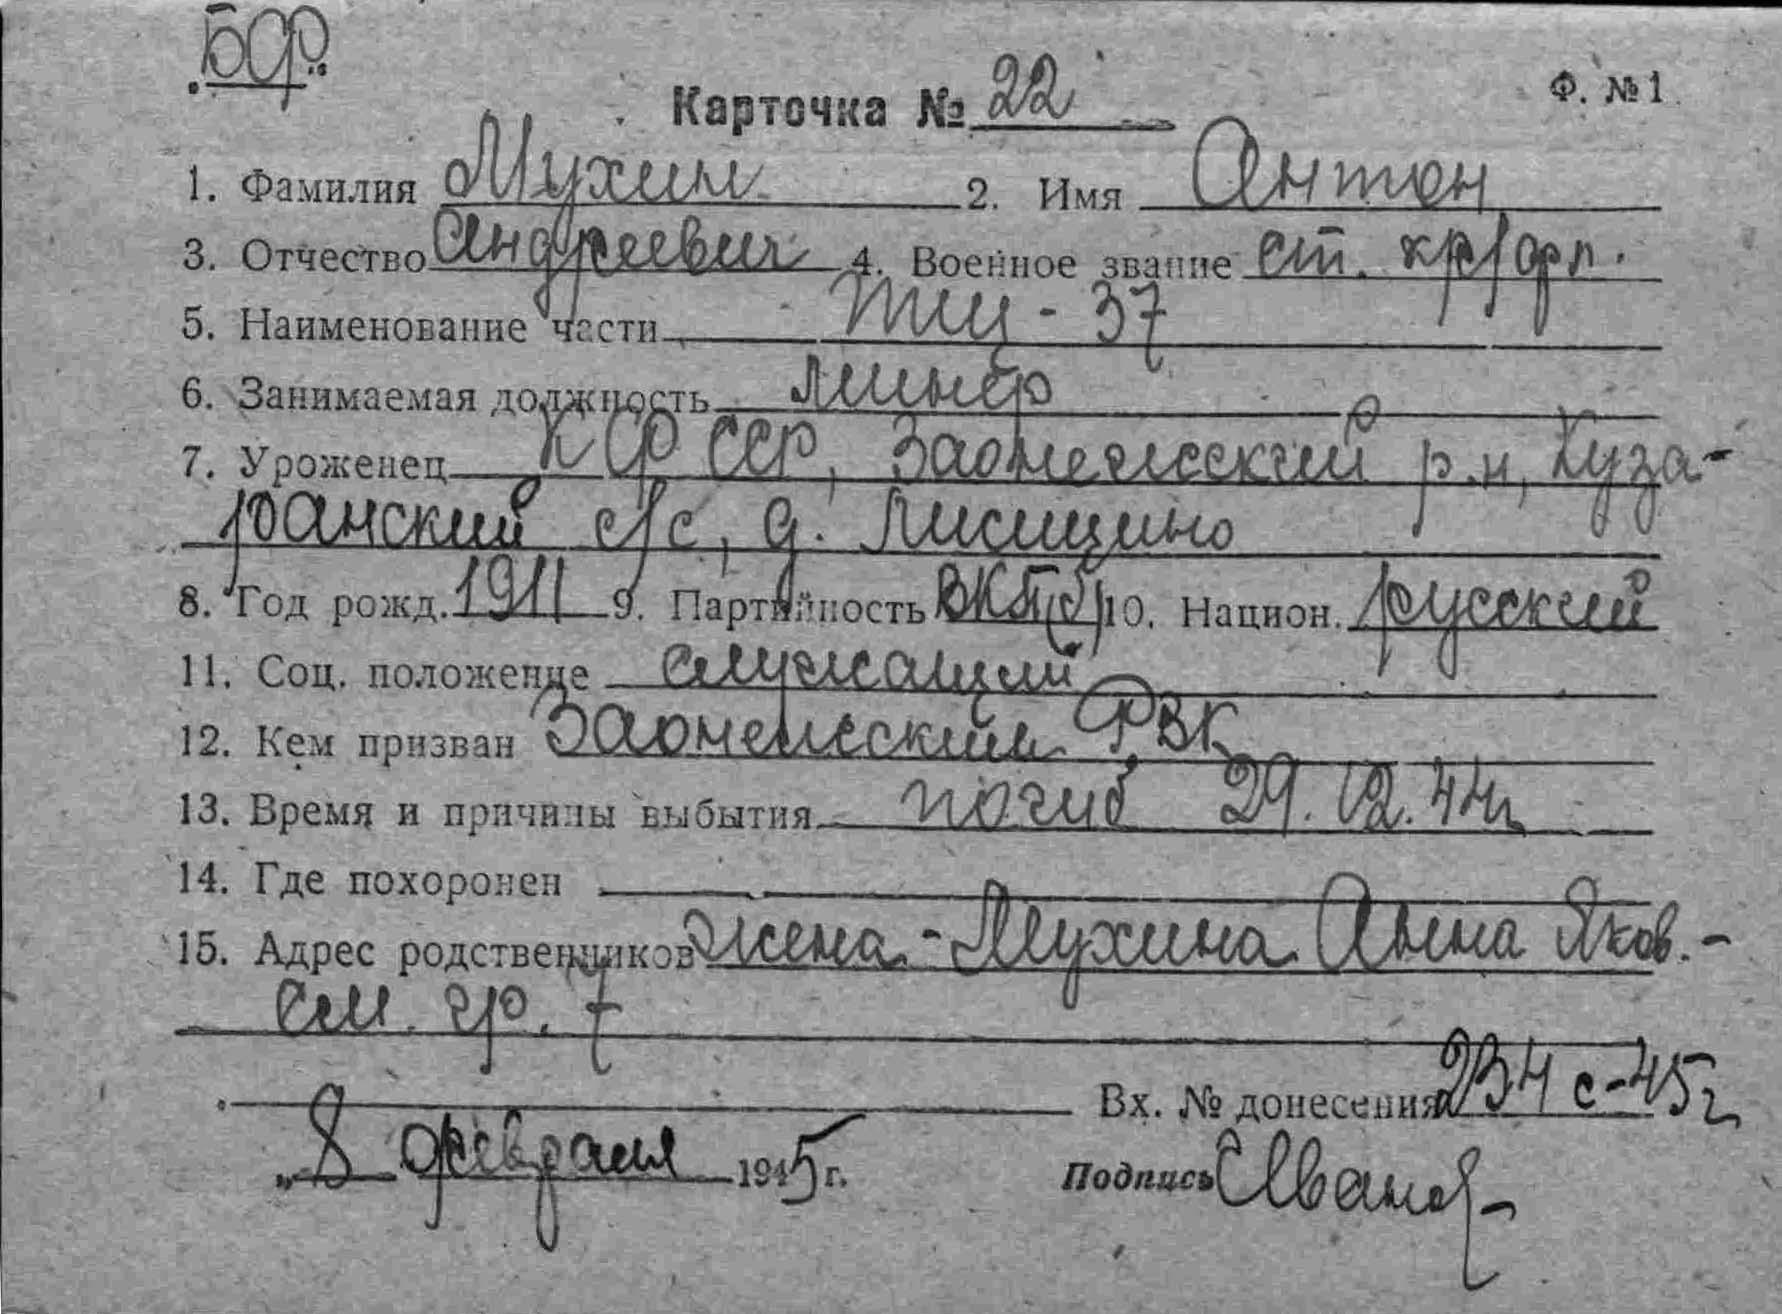 БФ
Карточка № 22 Ф. №1
1. Фамилия Мухин 2. Имя Антон
3. Отчество Андреевич 4. Военное звание ст. кр/фл.
5. Наименование части ТЩ-37
6. Занимаемая должность минёр
7. Уроженец КФССР, Заонежский р-н, Куза-
ранский с/с, д. Лисицино
8. Год рожд. 1911 9. Партийность ВКП(б) 10. Национ. русский
11. Соц. положение служащий
12. Кем призван Заонежским РВК
13. Время и причины выбытия погиб 29.12.44г
14. Где похоронен
15. Адрес родственников жена - Мухина Анна Яков. -
см. гр. 7
Вх. № донесения 234 с-45г
„8 февраля 1945 г. Подпись